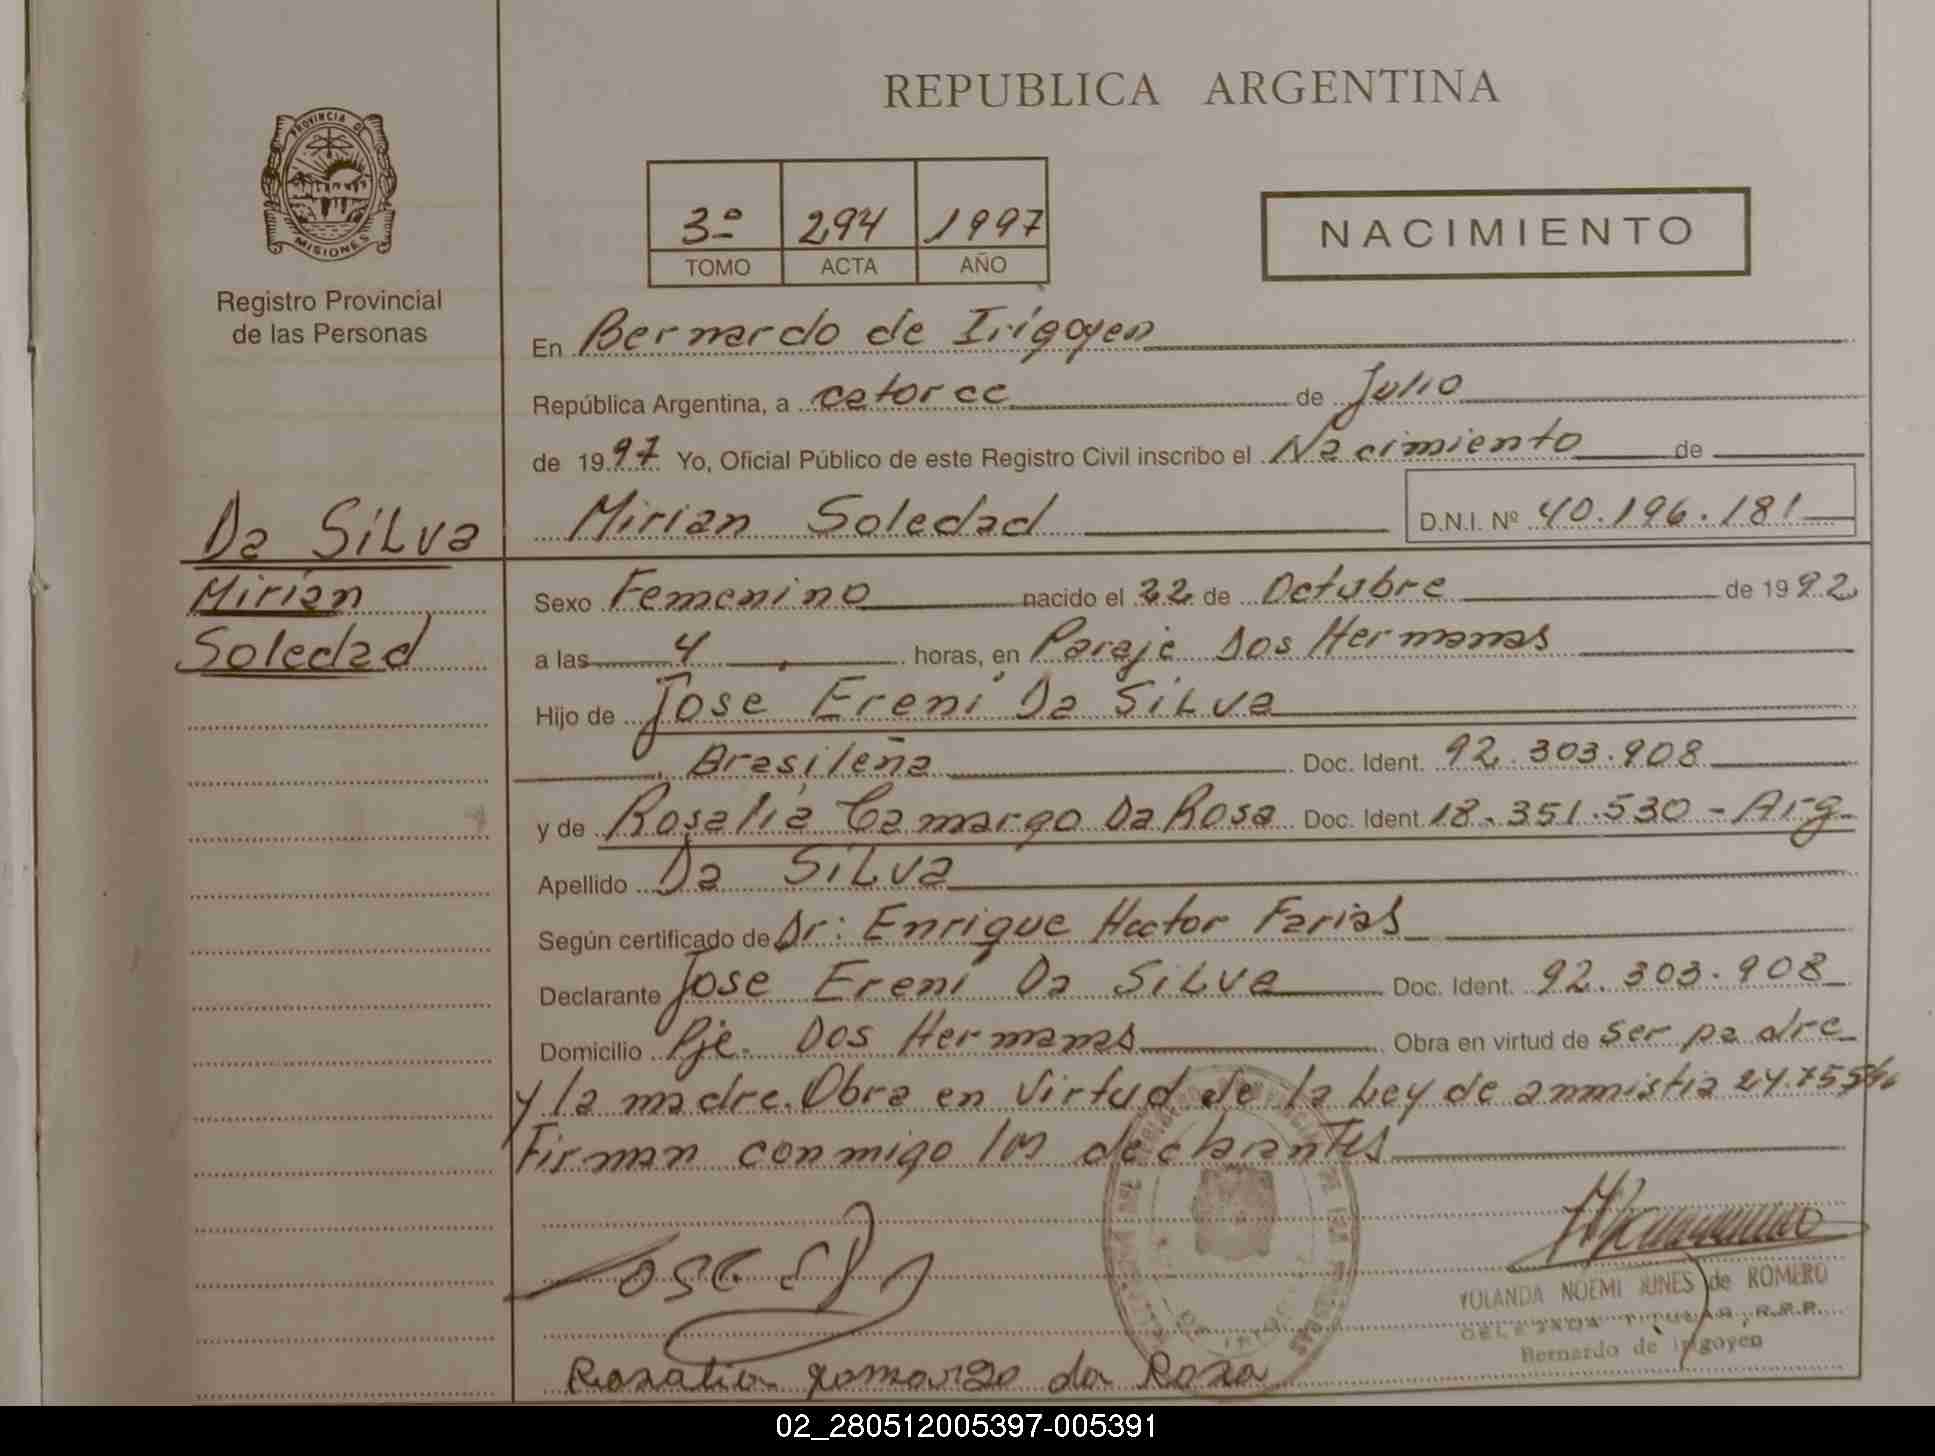 REPUBLICA ARGENTINA
PROVINCIA DE
MISIONES
Registro Provincial
de las Personas
3º 294 1997
TOMO ACTA AÑO
NACIMIENTO
En Bernardo de Irigoyen
República Argentina, a catorce de Julio
de 1997 Yo, Oficial Público de este Registro Civil inscribo el Nacimiento de
Mirian Soledad D.N.I. Nº 40.196.181
Da SiLva
Mirian
Soledad
Sexo Femenino nacido el 22 de Octubre de 1992
a las 4 horas, en Paraje Dos Hermanas
Hijo de Jose Ereni Da SiLva
Brasileña Doc. Ident. 92.303.908
y de Rosalia Camargo Da Rosa Doc. Ident. 18.351.530 - Arg.
Apellido Da SiLva
Según certificado de Dr: Enrique Hector Farias
Declarante Jose Ereni Da SiLva Doc. Ident. 92.303.908
Domicilio Pje. Dos Hermanas Obra en virtud de ser padre
y la madre. Obra en Virtud de la Ley de ammistia 24.755
Firman conmigo los declarantes
Jose
YOLANDA NOEMI JUNES de ROMERO
DELEGADA TITULAR R.P.P.
Bernardo de Irigoyen
Rosalia gomargo da Rosa
02_280512005397-005391